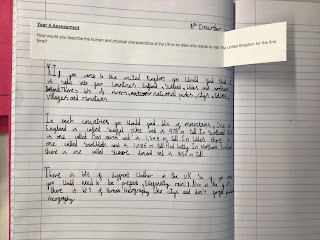 8th December
Year 4 Assessment
How would you describe the human and physical characteristics of the UK to an alien who wants to visit The United Kingdom for the first
time?
If you come to the united Kingdom you Would find that it
is split into four countries England, Scotland, Wales and northern
Ireland. There's lots of rivers, national parks, city's,
villages and mountains.
In each countries you would find lots of mountains. One in
England is called Scafell pike and is 978m tall. In Scotland there
is one called Ben nevis and is 1,344m tall. In Wales there is
one called Snowdon and is 1,085m tall. And lastly In Northern Ireland
there is one called Slieve donard and is 850m tall.
There is lots of different Weather in the UK. So if you
you Would need to be prepared, (especially rain). Also in the
there is lot's of human Geography like city's and don't forget
Geography.